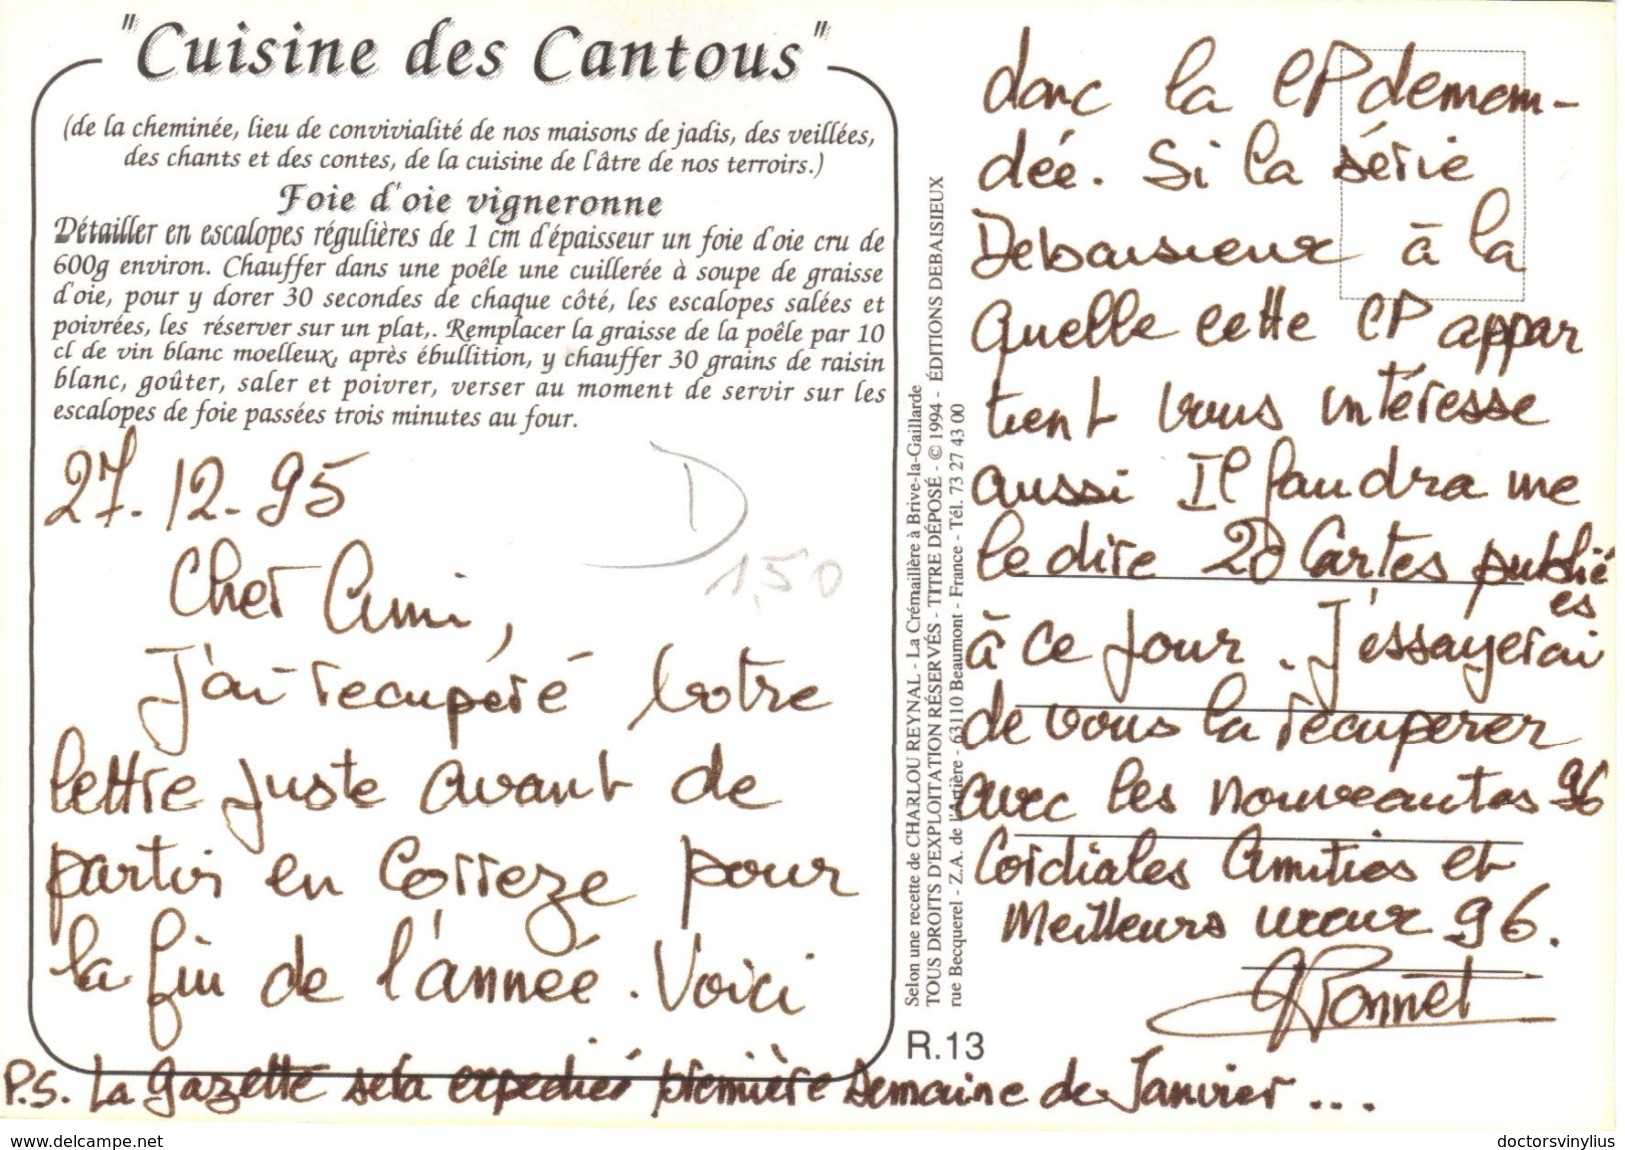 "Cuisine des Cantous"
(de la cheminée, lieu de convivialité de nos maisons de jadis, des veillées,
des chants et des contes, de la cuisine de l'âtre de nos terroirs.)
Foie d'oie vigneronne
Détailler en escalopes régulières de 1 cm d'épaisseur un foie d'oie cru de
600g environ. Chauffer dans une poêle une cuillerée à soupe de graisse
d'oie, pour y dorer 30 secondes de chaque côté, les escalopes salées et
poivrées, les réserver sur un plat,. Remplacer la graisse de la poêle par 10
cl de vin blanc moelleux, après ébullition, y chauffer 30 grains de raisin
blanc, goûter, saler et poivrer, verser au moment de servir sur les
escalopes de foie passées trois minutes au four.
27.12.95
D
1,50
Cher Ami,
J'ai recupéré votre
lettre juste avant de
partir en Correze pour
la fin de l'année. Voici
donc la CP demem-
dée. Si la série
Debaisieux à la
quelle cette CP appar
tient vous intéresse
aussi Il faudra me
le dire 20 Cartes publié
es
à ce jour. J'essayerai
de vous la récuperer
avec les nouveautes 96
Cordiales Amities et
Meilleurs vœux 96.
Bonnet
P.S. La gazette sera expediée première Semaine de Janvier ...
Selon une recette de CHARLOU REYNAL - La Crémaillère à Brive-la-Gaillarde
TOUS DROITS D'EXPLOITATION RÉSERVÉS - TITRE DÉPOSÉ - © 1994 - ÉDITIONS DEBAISIEUX
rue Becquerel - Z.A. de l'Artière - 63110 Beaumont - France - Tél. 73 27 43 00
R.13
www.delcampe.net
doctorsvinylius